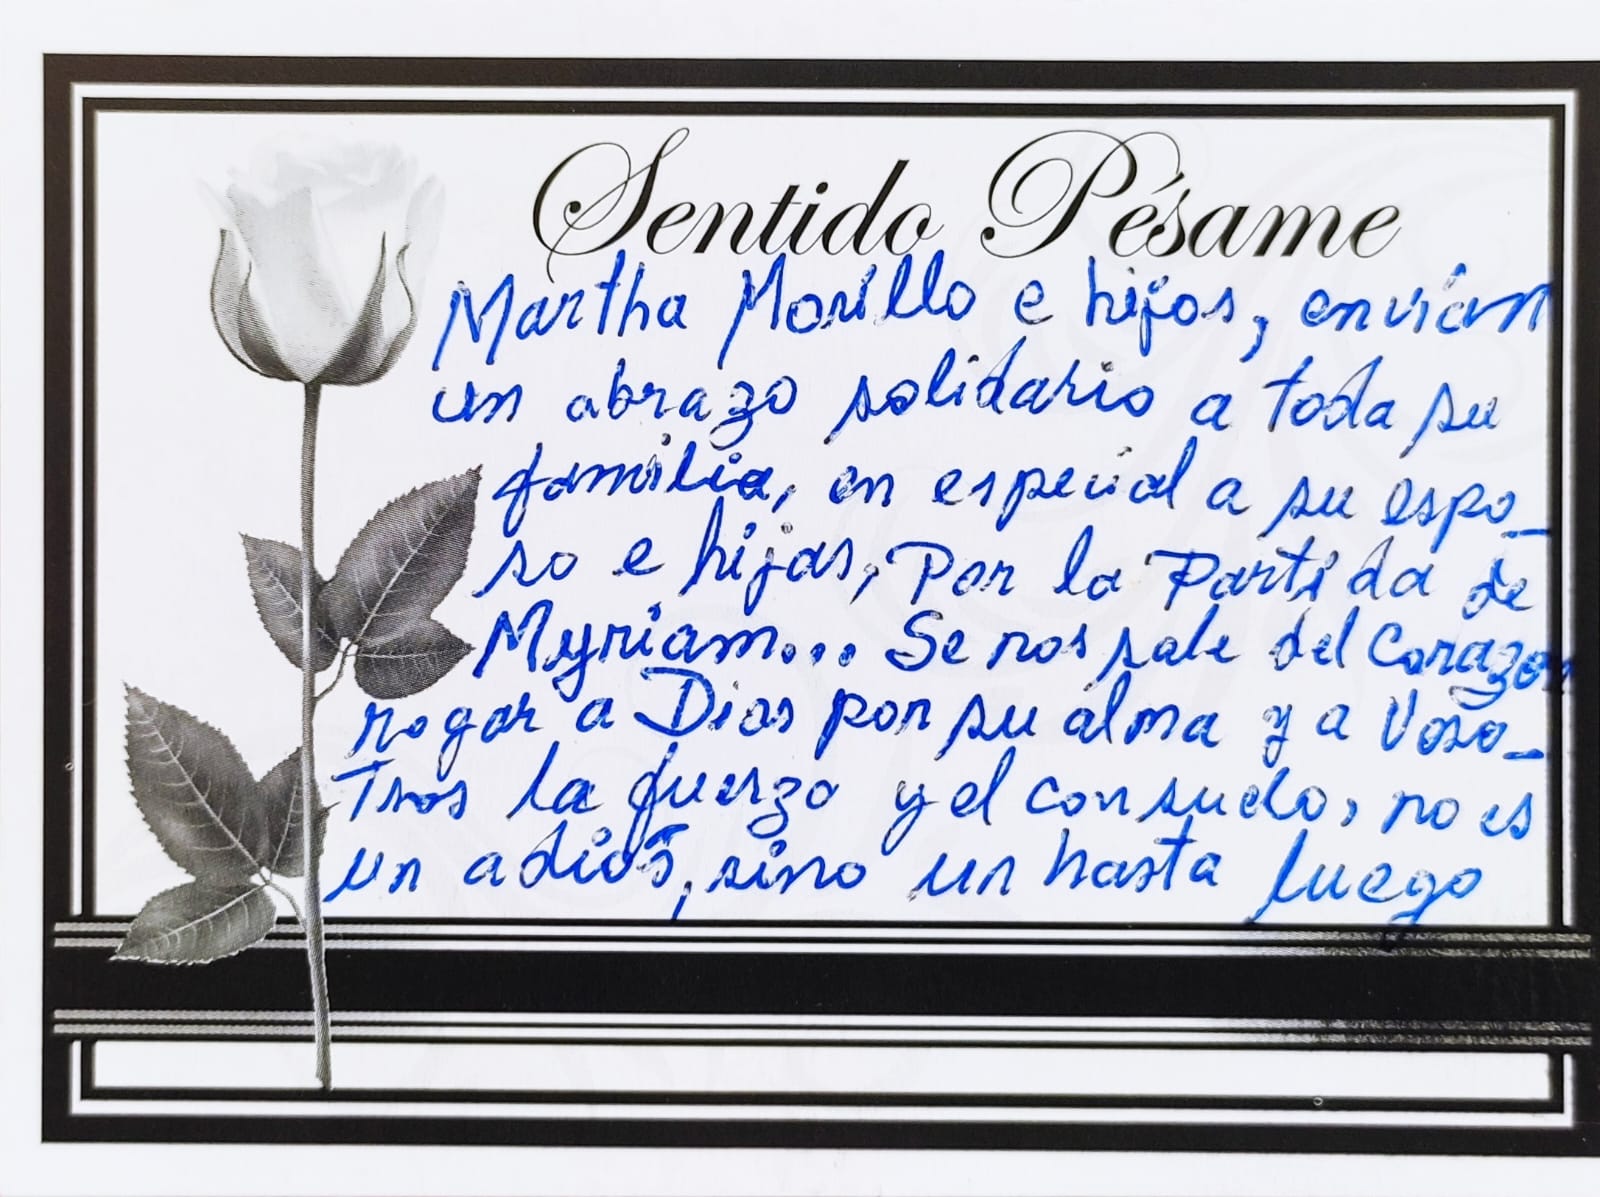 Sentido Pésame
Martha Morillo e hijos, envían
un abrazo solidario a toda su
familia, en especial a su espo_
so e hijas, Por la Partida de
Myriam... Se nos sale del Corazon
rogar a Dios por su alma y a Voso_
Tros la fuerza y el consuelo, no es
un adiós, sino un hasta luego